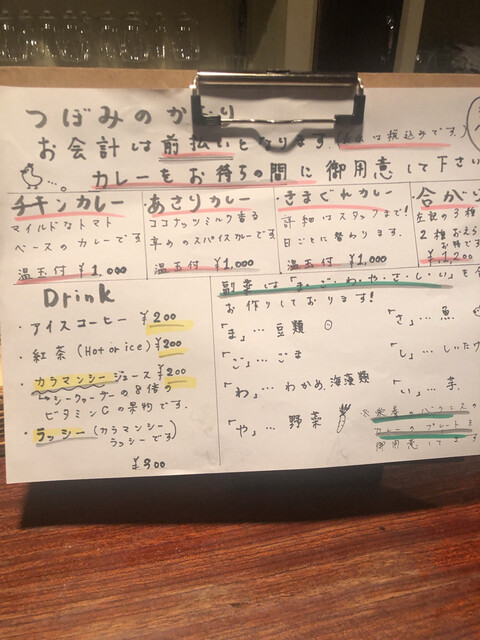 つぼみのか り
お会計は前払いとなります。( は税込みです。)
カレーをお待ちの間に御用意して下さい
チキンカレー
マイルドなトマト
ベースのカレーです
温玉付 ¥1,000
あさりカレー
ココナッツミルク香る
辛めのスパイスカレーです。
温玉付 ¥1,000
きまぐれカレー
詳細はスタッフまで!
日ごとに替わります。
温玉付 ¥1,000
合がけ
左記の3種
2種おえら
¥1,200
Drink
・アイスコーヒー ¥200
・紅茶 (Hot or ice) ¥200
・カラマンシージュース ¥200
シークァーサーの8倍の
ビタミンCの果物です。
・ラッシー (カラマンシー
ラッシーです)
¥300
副菜は「ま・ご・わ・や・さ・し・い」を
お作りしております!
「ま」… 豆類
「ご」… ごま
「わ」… わかめ、海藻類
「や」… 野菜
「さ」… 魚
「し」… しいたけ
「い」… 芋
※栄養のバランスの
カレーのプレートを
御用意してます